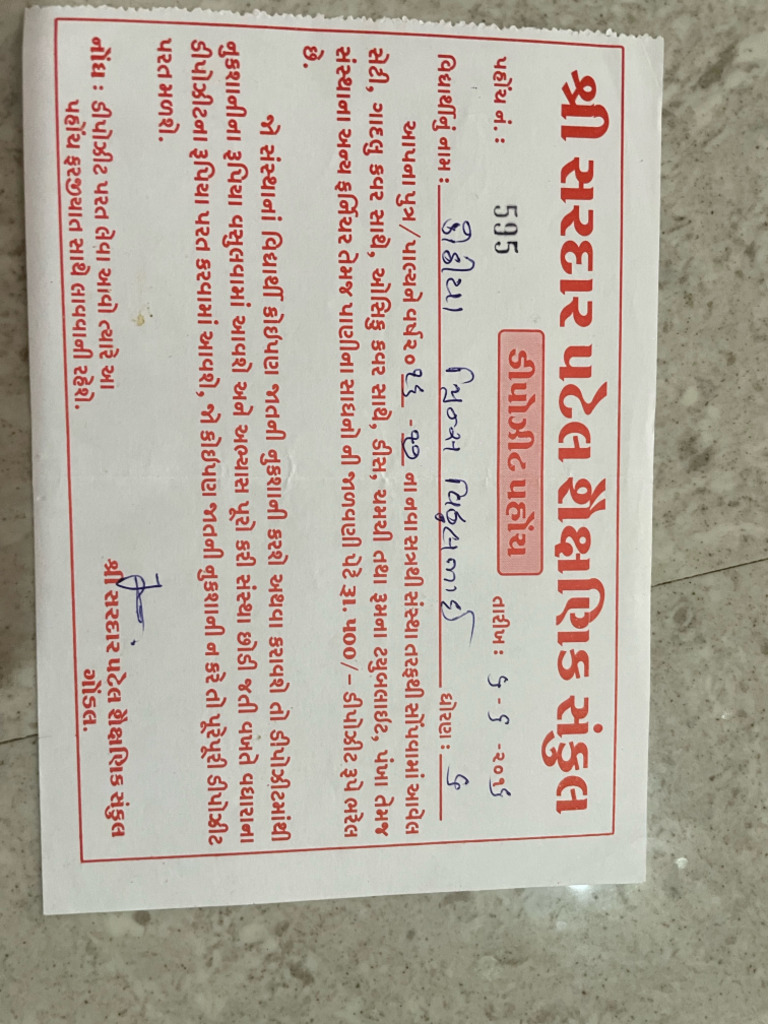 શ્રી સરદાર પટેલ શૈક્ષણિક સંકુલ
ડીપોઝીટ પહોંચ
પહોંચ નં. : 595 તારીખ : ૬ - ૬ - ૨૦૨૬
વિદ્યાર્થીનું નામ : પ્રિન્સ વિઠ્ઠલભાઈ ધોરણ : ૬
આપના પુત્ર/પાલ્યને વર્ષ ૨૦૨૬ - ૨૭ ના નવા સત્રથી સંસ્થા તરફથી સોંપવામાં આવેલ
સેટી, ગાદલુ કવર સાથે, ઓસિકુ કવર સાથે, ડીસ, ચમચી તથા રૂમના ટ્યુબલાઈટ, પંખા તેમજ
સંસ્થાના અન્ય ફર્નિચર તેમજ પાણીના સાધનો ની જાળવણી પેટે રૂા. ૫૦૦/- ડીપોઝીટ રૂપે ભરેલ
છે.
જો સંસ્થાનાં વિદ્યાર્થી કોઈપણ જાતની નુકશાની કરશે અથવા કરાવશે તો ડીપોઝીટમાંથી
નુકશાનીના રૂપિયા વસુલવામાં આવશે અને અભ્યાસ પૂરો કરી સંસ્થા છોડી જતી વખતે વધારાના
ડીપોઝીટના રૂપિયા પરત કરવામાં આવશે, જો કોઈપણ જાતની નુકશાની ન કરે તો પૂરેપૂરી ડીપોઝીટ
પરત મળશે.
નોંધ : ડીપોઝીટ પરત લેવા આવો ત્યારે આ
પહોંચ ફરજીયાત સાથે લાવવાની રહેશે.
શ્રી સરદાર પટેલ શૈક્ષણિક સંકુલ
ગોંડલ.